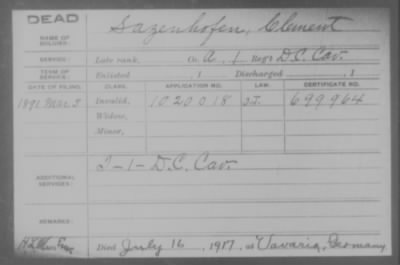 DEAD
NAME OF SOLDIER: Sazenhofen, Clement
SERVICE: Late rank, Co. A, 1 Reg't D.C. Cav.
TERM OF SERVICE: Enlisted , 1 Discharged , 1
DATE OF FILING. CLASS. APPLICATION NO. LAW. CERTIFICATE NO.
1891 Mar. 3 Invalid, 1020018 699964
Widow,
Minor,
ADDITIONAL SERVICES: 2-1- D.C. Cav.
REMARKS:
Died July 16, 1917, at Vavaria, Germany